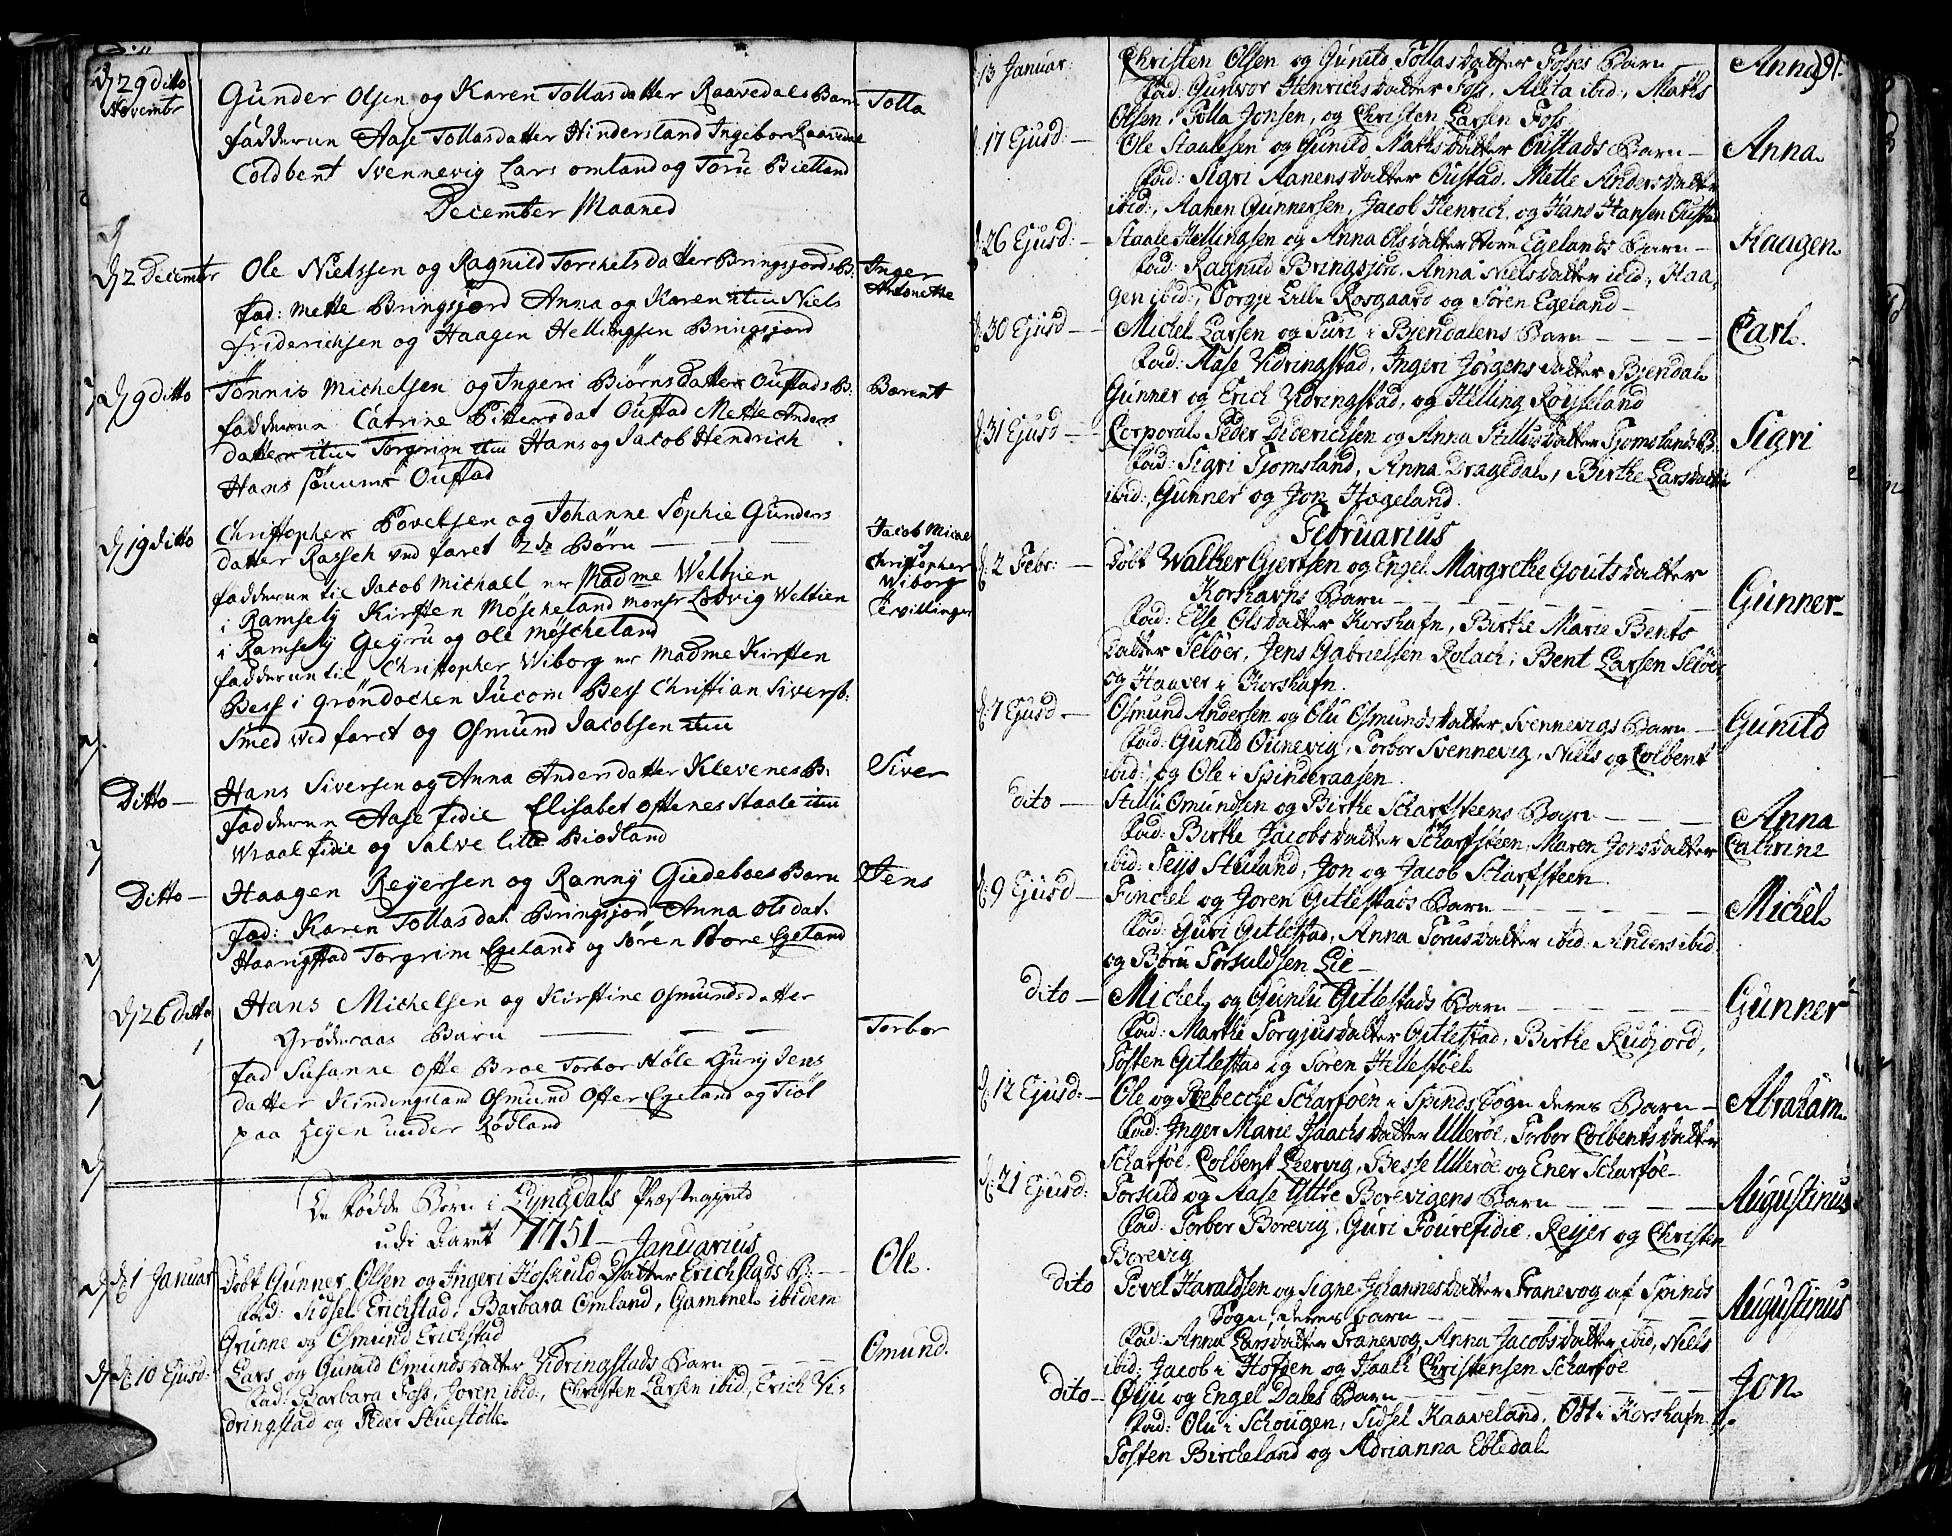 d 29 ditto
November
Gunder Olsen og Karen Tollasdatter Raavedals Barn
Tolla
fadderne Aase Tollasdatter Hindersland Ingebor Raavedal
Coldbent Svennevig Lars omland og Toru Bielland
December Maaned
d 2 December
Ole Nielssen og Ragnild Torchelsdatter Bringsjords B.
Inger
Antonette
fad: Mette Bringsjord Anna og Karen item Niels
friderichsen og Haagen Hellingsen Bringsjord
d 9 ditto
Tönnis Michelsen og Ingeri Biörnsdatter Oustads B:
Berent
fadderne Catrine Pittersdat Oustad Mette Anders
datter item Torgrim item Hans og Jacob Hendrich
Hans sönner Oustad
d 19 ditto
Christopher Povelsen og Johanne Sophie Gunders
datter Rasseh ved faret 2de Börn
Jacob Michel
Christopher
Wiborg
Tvillinger
fadderne til Jacob Michall er Madme Weltzien
i Ramsely Kirsten Möscheland monsr Lodvig Weltien
i Ramsely Geyru og ole möscheland
fadderne til Christopher Wiborg er Madme Kirsten
Bess i gröndochen Jucom Bess Christian Sivers b:
Smed wed faret og Osmund Jacobsen item
Ditto —
Hans Siversen og Anna Andersdatter Klevenes B:
Siver
fadderne Aase fidie Elisabet oftenes Staale item
Wraal fidie og Salve lille Biodland
Ditto —
Haagen Reyersen og Ranny Gudeboes Barn
Jens
fad: Karen Tollasdat. Bringsjord Anna olsdat.
Haarigstad Torgrim Egeland og Sören Store Egeland
d 26 ditto
Hans Michelsen og Kirstine Osmundsdatter
Gröderaas Barn
Torbor
fad Susanne Ofte Broe Torbor Höle Gury Jens
datter Kindingsland Osmund Ofter Egeland og Tiöl
paa heyen under Rödland
De födde Börn i Lyngdals Præstegield
udi Aaret 1751 Januarius
d: 1 Januar:
Döbt Gunner Olsen og Ingeri Hoskuld Datter Erichstads B:
Ole.
fad: Sidsel Erichstad, Barbara Omland, Gammel ibidem
Grunne og Osmund Erichstad
d: 10 Ejusd:
Lars og Gunild Omunds datter Vidringstads Barn
Omund.
fad: Barbara Foss, Joren ibid:, Christen Larsen ibid, Erich Vi-
dringstad og Peder Skuestölle
13 Januar:
Christen Olsen og Gunild Tollas datter Foses Barn
Anna
91.
fad: Gunvor Henrichs datter Foss, Alita ibid:, Maths
Olsen, Tolla Jonsen, og Christen Larsen Fos
d: 17 Ejusd: —
Ole Staalesen og Gunild Maths datter Oustads Barn —
Anna.
fad: Sigri Aanens datter Oustad, Mette Anders datter
ibid:, Aanen Gunnersen, Jacob Henrich, og Hans Hansen Oustad
d: 26 Ejusd: —
Staale Hellingsen og Anna Ols datter Store Egelands Barn —
Haagen.
fad: Ragnild Bringsjor, Anna Niels datter ibid:, Haa
gen ibid:, Torgje Lille Rosgaard og Sören Egeland —
d: 30 Ejusd —
Michel Larsen og Turi i Bjendalens Barn
Carl.
fad: Aase Vidringstad, Ingeri Jörgens datter Bjendal
Gunner og Erich Vidringstad, og Helling Röisseland
d: 31 Ejusd —
Corporal Peder Diderichsen og Anna Stillis datter Tjomslands B:
Sigri
fad: Sigri Tjomsland, Anna Dragedal, Birthe Lars datter
ibid:, Gunner og Jon Hageland.
Februarius
d: 2 Febr: —
Döbt Walther Gjertsen og Engel Margrethe Gouts datter
Korshavns Barn
Gunner
fad: Elle Ols datter Korshafn, Birthe Marie Bents
Datter Selöer, Jens Gabrielsen Rolach, Bent Larsen Selöer
og Haaver i Korshafn.
d: 7 Ejusd —
Osmund Andersen og Olu Osmunds datter Svennevigs Barn —
Gunild
fad: Gunild Ounevig, Torbor Svennevig, Niels og Colbent
ibid:, og Ole i Spinderaasen.
dito —
Stilli Omundsen og Birthe Scharfsteens Barn
Anna
Cathrine
fad: Birthe Jacobs datter Scharfsteen, Maren Jons datter
ibid: Teys Stuland, Jon og Jacob Scharfsteen.
d: 9 Ejusd —
Tonckel og Joren Gitlestads Barn
Michel
fad: Guri Gitlestad, Anna Torus datter ibid: Anders ibid:
og Boru Torsuldsen Lie —
dito —
Michel og Gunlu Gitlestads Barn
Gunner
fad: Marthe Torgjus datter Gitlestad, Birthe Rudjord,
Tosten Gitlestad og Sören Hellestöel
d: 12 Ejusd: —
Ole og Rebecche Scharföen i Spinds Sogn deres Barn —
Abraham.
fad: Inger Marie Isaachs datter Ulleröe, Torbor Colbents datter
Scharföe, Colbent Leervig, Besse Ulleröe og Ener Scharföe —
d: 21 Ejusd:
Torsuld og Aase Yttre Borevigens Barn
Augustinus
fad: Torbor Borevig, Guri Fourefidie, Reyer og Christen
Borevig
dito
Povel Haraldsen og Signe Johannes datter Tranevog af Spinds
Sogn, deres barn
Augustinus
fad: Anna Lars datter Tranevog, Anna Jacobs datter ibid, Niels
ibid: Jacob i Hofden og Isaak Christensen Scharföe
dito —
Öyu og Engel Dales Barn
Jon.
fad: Olu i Schougen, Sidsel Kaaveland, Odt i Korshafn
Tosten Bircheland og Adrianna Ebledal